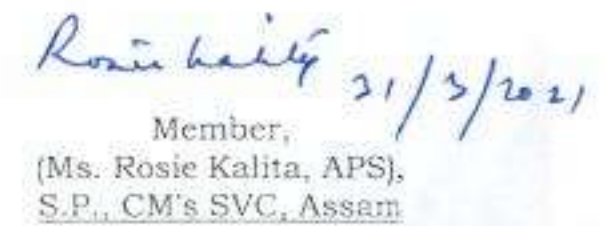 Rosie Kalita 31/3/2021
Member,
(Ms. Rosie Kalita, APS),
S.P., CM's SVC, Assam